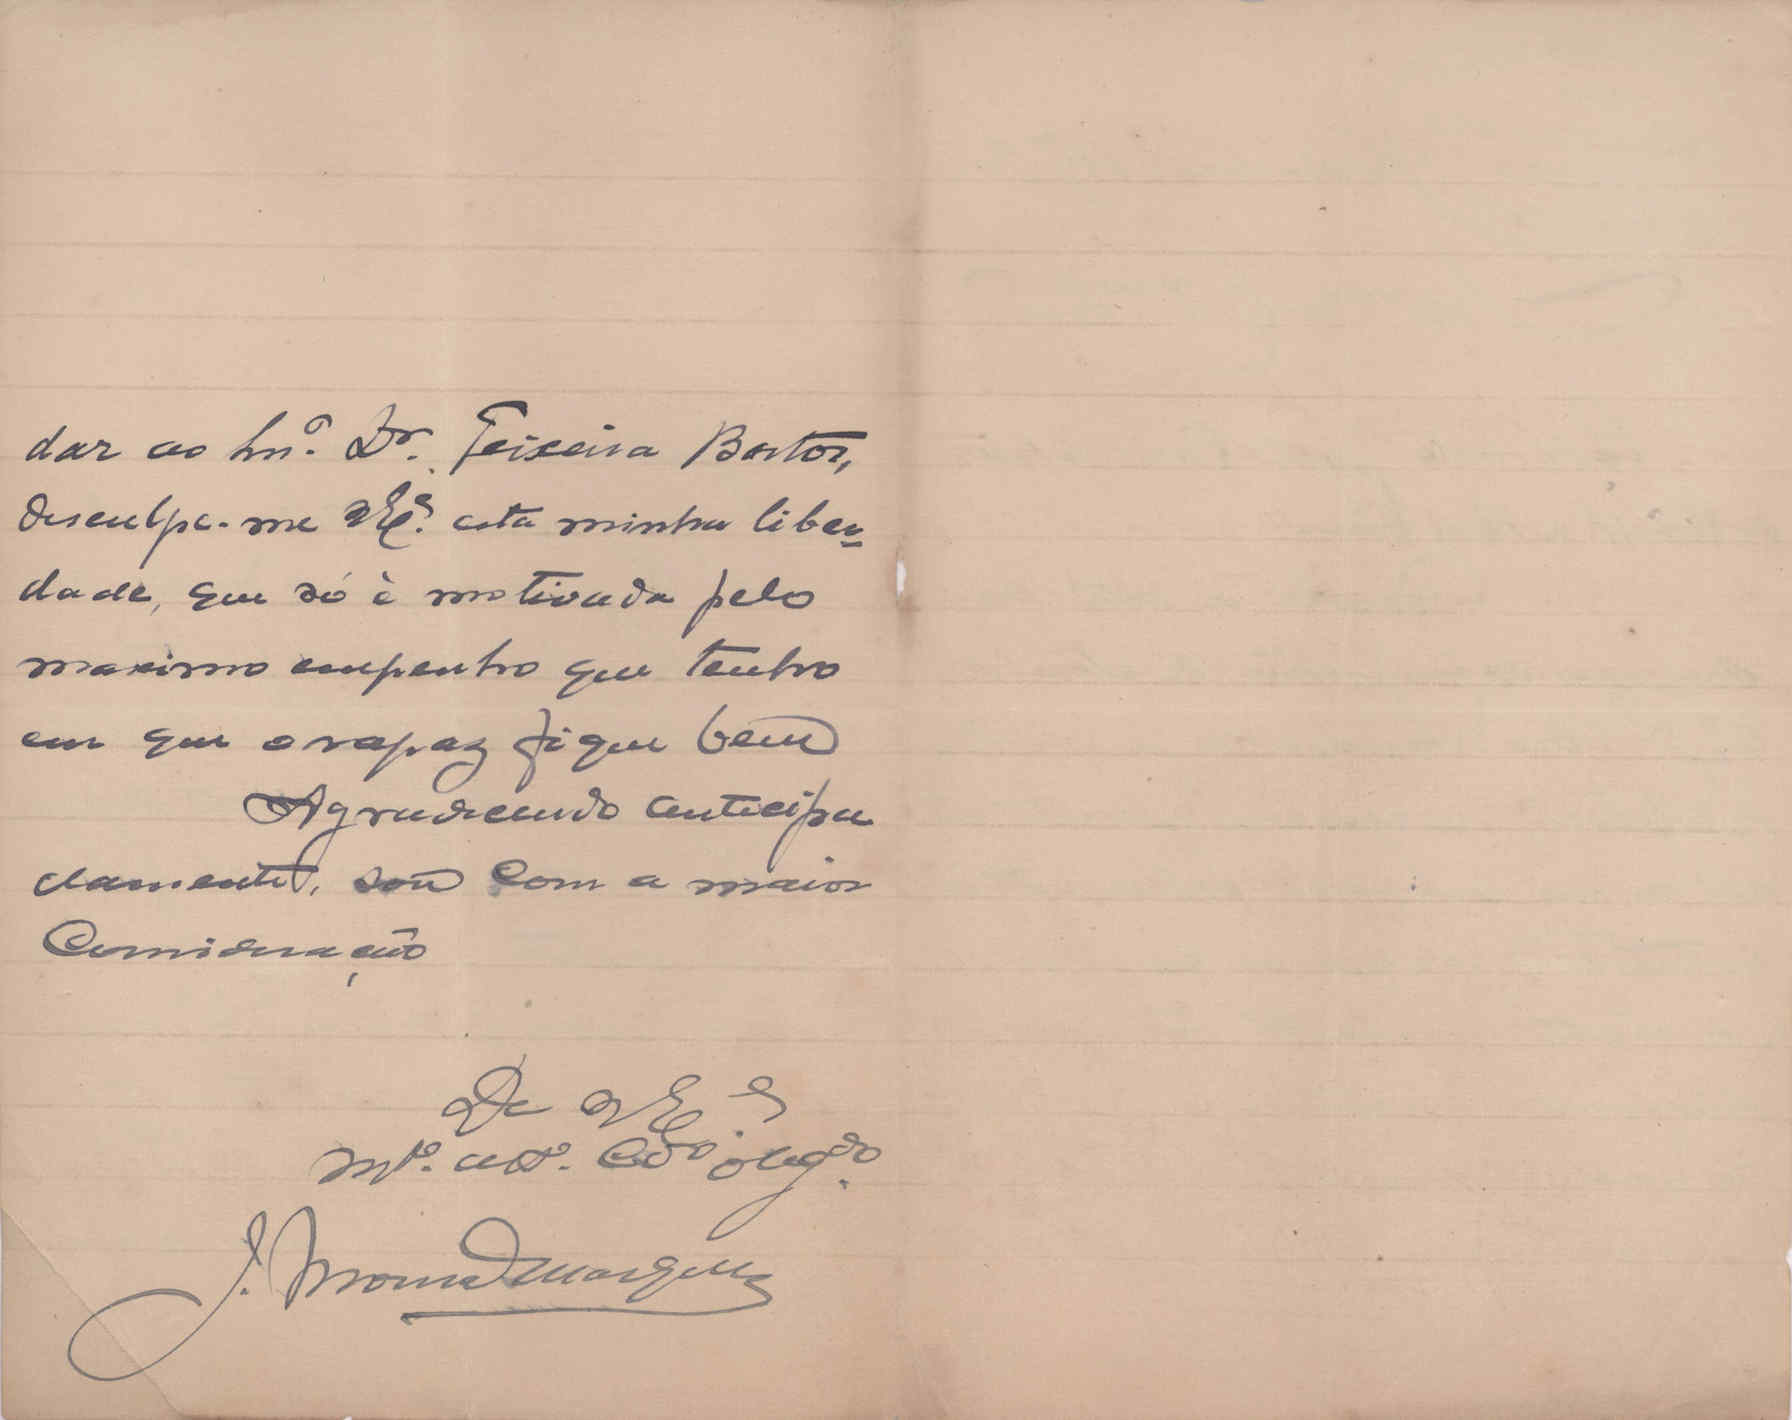 dar ao Snr.º Dr. Teixeira Bastos,
desculpe-me V Ex.ª esta minha liber-
dade, que só è motivada pelo
maximo empenho que tenho
em que o rapaz fique bem
Agradecendo anticipa
damente, sou com a maior
Consideração
De V Ex.ª
Mt.º att.º Cdo obrg.do
J. Marques